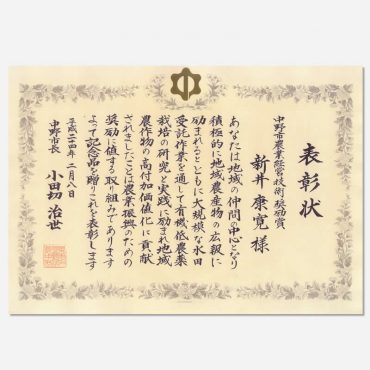 表彰状
中野市農業経営技術奨励賞
新井康寛様
あなたは地域の仲間の中心となり
積極的に地域農産物の広報に
励まれるとともに大規模な水田
受託作業を通して有機低農薬
栽培の研究と実践に励まれ地域
農作物の高付加価値化に貢献
されましたことは農業振興のための
奨励に値する取り組みであります
よって記念品を贈りこれを表彰します
平成二四年二月八日
中野市長 小田切治世